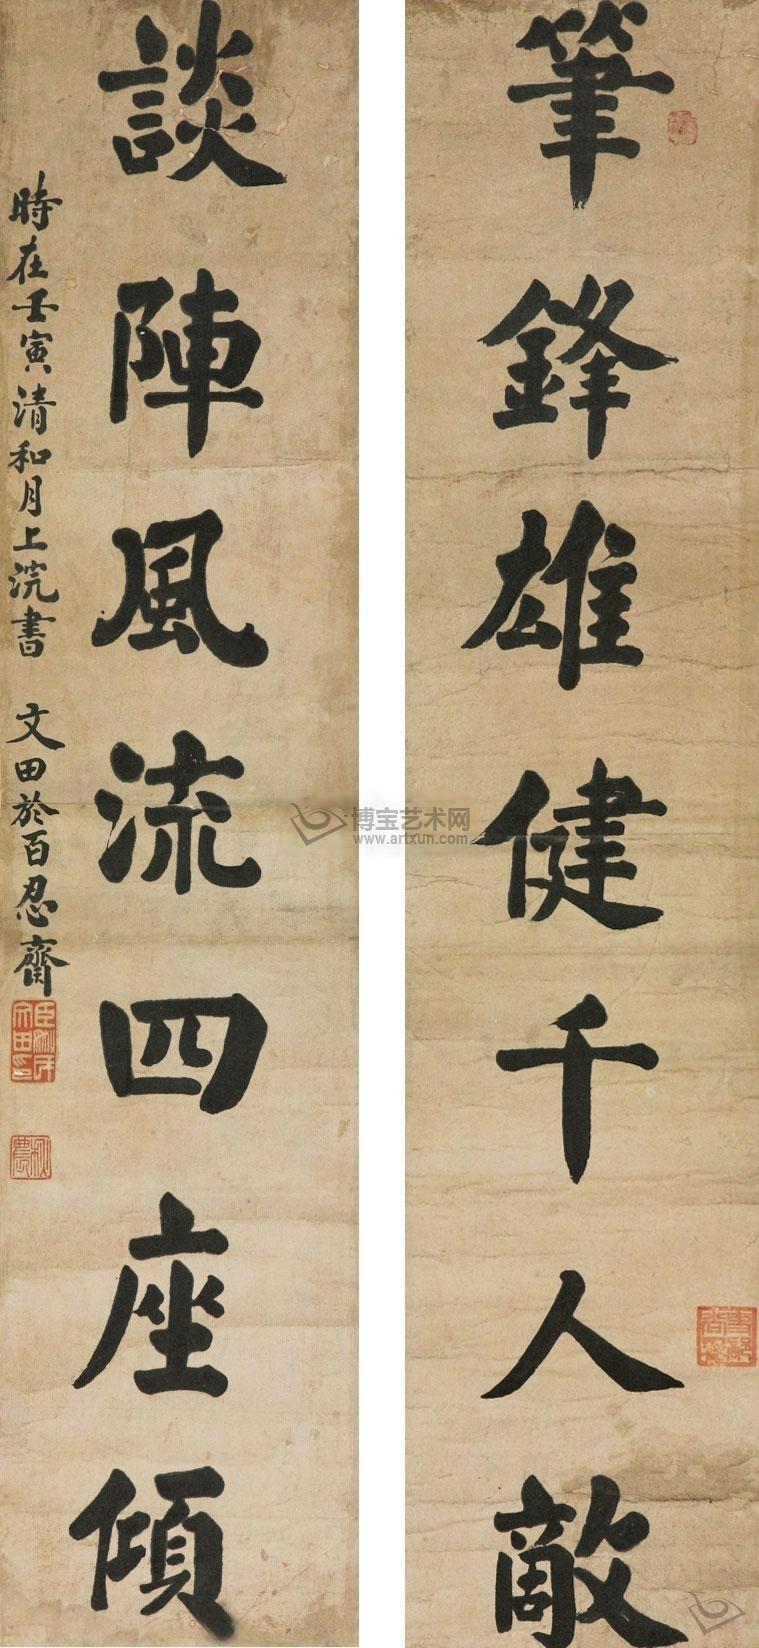 筆鋒雄健千人敵
談陣風流四座傾
時在壬寅清和月上浣書 文田於百忍齋
博宝艺术网
www.artxun.com